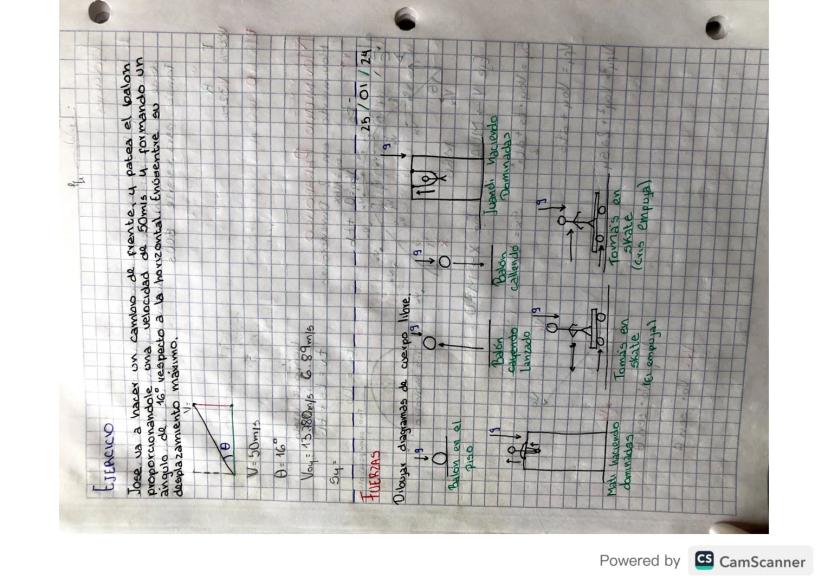 EJERCICIO
Jose va a hacer un cambio de frente, y patea el balon
proporcionandole una velocidad de 50m/s y formando un
ángulo de 16° respecto a la horizontal. Encuentre su
desplazamiento máximo.
V
θ
V=50m/s
θ=16°
Voy=13.780m/s 6.89m/s
Sy=
FUERZAS
25/01/24
Dibujar diagramas de cuerpo libre.
g
Balón en el
piso
g
Balón
lanzado
g
Balón
callendo
g
Juandi haciendo
Dominadas
g
Mali haciendo
dominadas
g
Tomás en
skate
(El empuja)
g
Tomás en
skate
(Cris empuja)
Powered by CS CamScanner